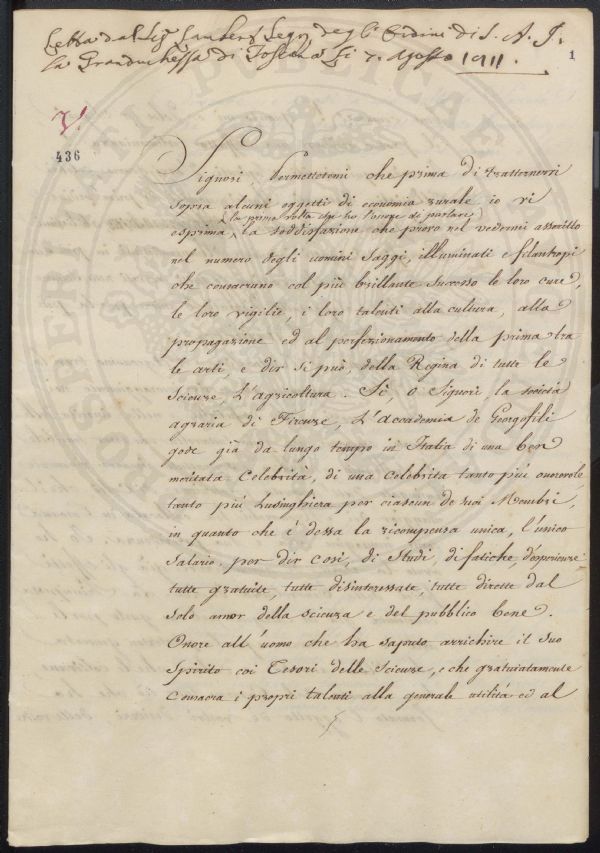 Letta dal Sig. Lambert Segr. degli Ordini di S. A. I.
la Granduchessa di Toscana li 7. Agosto 1811.
1
436
Signori. Permettetemi che prima di trattenervi
sopra alcuni oggetti di economia rurale io vi
(la prima volta che ho l'onore di parlare)
esprima la soddisfazione che provo nel vedermi ascritto
nel numero degli uomini saggi, illuminati e filantropi
che consacrano col più brillante successo le loro cure,
le loro vigilie, i loro talenti alla cultura, alla
propagazione ed al perfezionamento della prima tra
le arti, e dir si può, della Regina di tutte le
Scienze L'agricoltura. Sì, o Signori, la società
agraria di Firenze, L'accademia de Georgofili
gode già da lungo tempo in Italia di una ben
meritata Celebrità, di una celebrita tanto più onorevole
tanto più Lusinghiera per ciascun de suoi Membri,
in quanto che è dessa la ricompensa unica, l'unico
Salario per dir così, di Studi, di fatiche, d'esperienze
tutte gratuite, tutte disinteressate, tutte dirette dal
solo amor della scienza e del pubblico bene.
Onore all'uomo che ha saputo arrichire il suo
Spirito coi Tesori delle Scienze, e che gratuitamente
Consacra i propri talenti alla generale utilità ed al
PROSPERITATI PUBLICAE